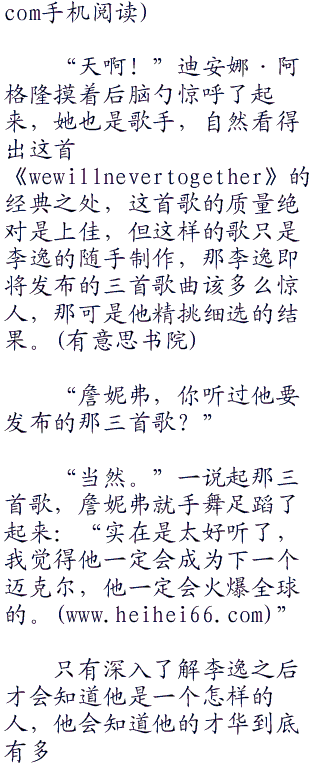 com手机阅读)
“天啊！”迪安娜·阿
格隆摸着后脑勺惊呼了起
来，她也是歌手，自然看得
出这首
《wewillnevertogether》的
经典之处，这首歌的质量绝
对是上佳，但这样的歌只是
李逸的随手制作，那李逸即
将发布的三首歌曲该多么惊
人，那可是他精挑细选的结
果。(有意思书院)
“詹妮弗，你听过他要
发布的那三首歌？”
“当然。”一说起那三
首歌，詹妮弗就手舞足蹈了
起来：“实在是太好听了，
我觉得他一定会成为下一个
迈克尔，他一定会火爆全球
的。(www.heihei66.com)”
只有深入了解李逸之后
才会知道他是一个怎样的
人，他会知道他的才华到底
有多